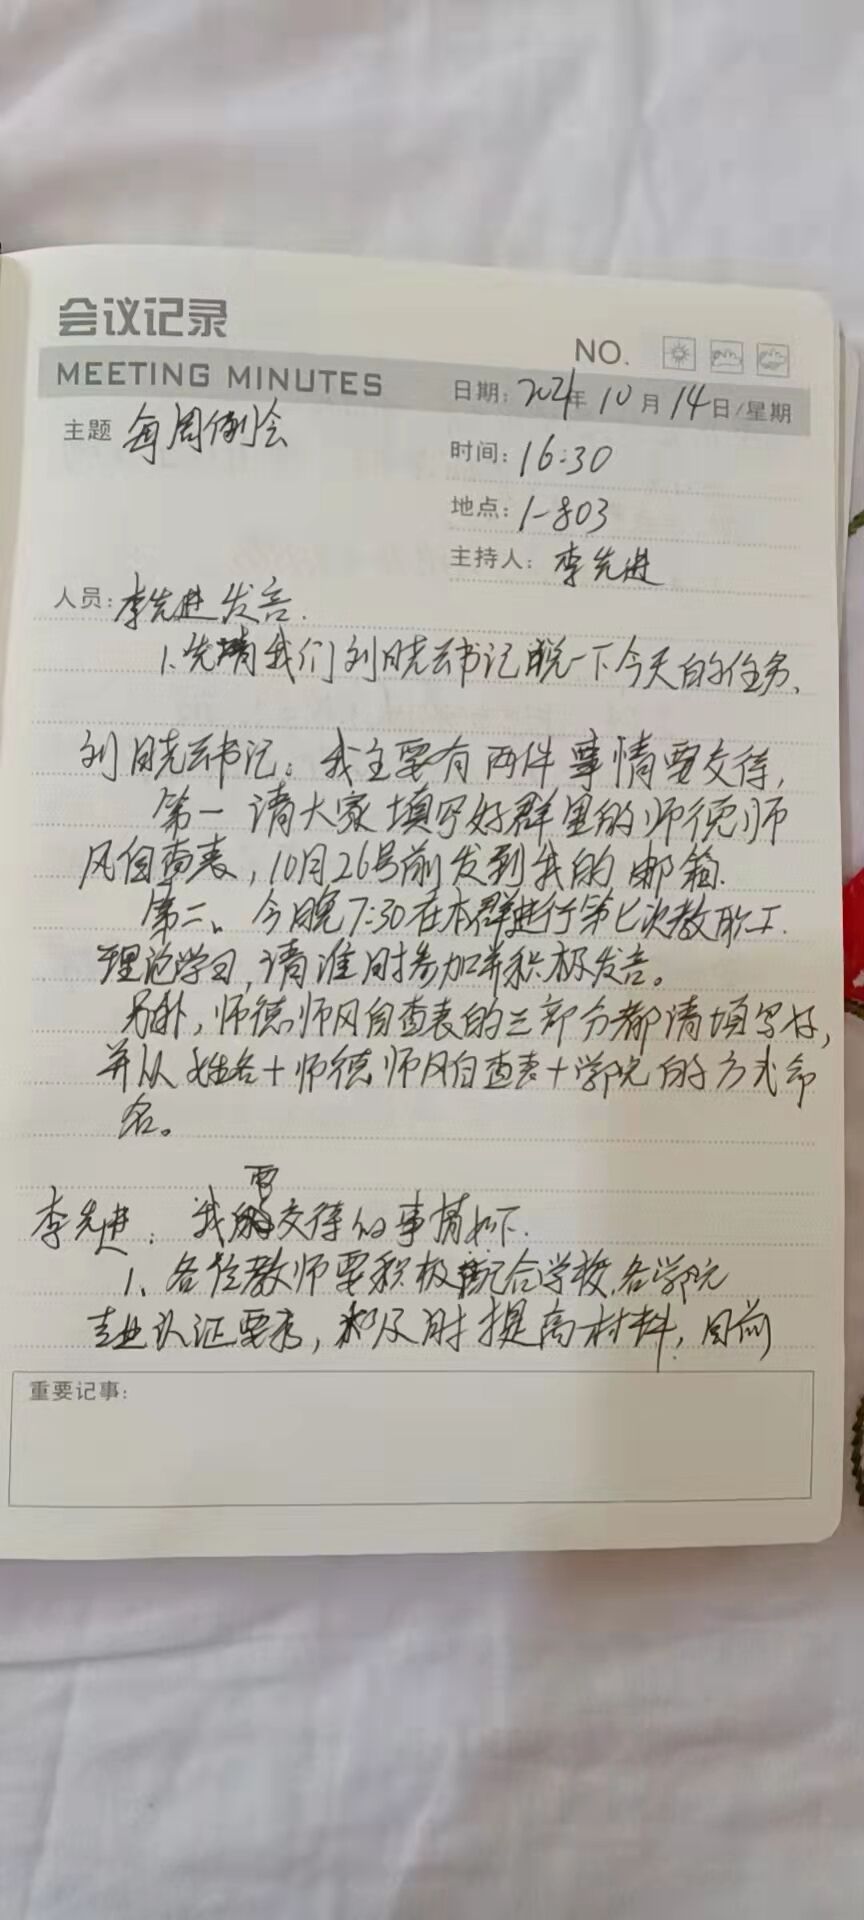 会议记录
NO.
MEETING MINUTES
日期: 2021年 10月 14日/星期
主题 每周例会
时间: 16:30
地点: 1-803
主持人: 李先进
人员: 李先进发言.
1.先请我们刘晓云书记说一下今天的任务.
刘晓云书记: 我主要有两件事情要交待,
第一 请大家填写好群里的师德师
风自查表, 10月26号前发到我的邮箱.
第二、今晚7:30在本群进行第七次教职工.
理论学习, 请准时参加并积极发言。
另外, 师德师风自查表的三部分都请填写好,
并从姓名+师德师风自查表+学院的方式命
名。
李先进: 我要交待的事情如下.
1、各位教师要积极配合学校.各学院
专业认证要求, 及时提高材料, 目前
重要记事: